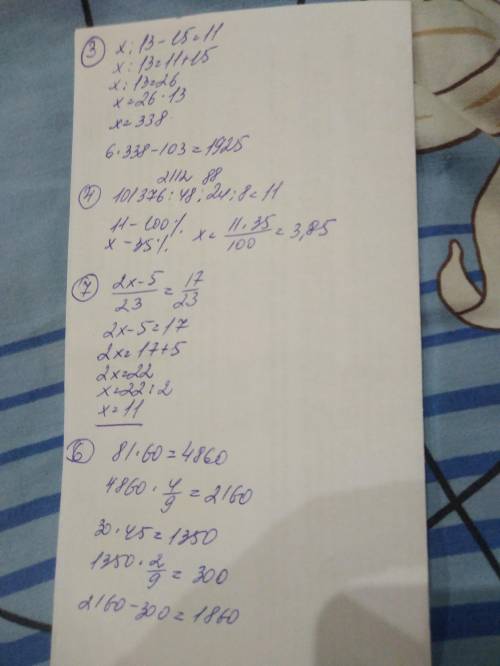 ③ x : 13 - 15 = 11
x : 13 = 11 + 15
x : 13 = 26
x = 26 · 13
x = 338
6 · 338 - 103 = 1925
2112 88
④ 101376 : 48 : 24 : 8 = 11
11 - 100%
x - 35% x = \frac{11 · 35}{100} = 3,85
⑦ \frac{2x-5}{23} = \frac{17}{23}
2x - 5 = 17
2x = 17 + 5
2x = 22
x = 22 : 2
x = 11
⑥ 81 · 60 = 4860
4860 · \frac{4}{9} = 2160
30 · 45 = 1350
1350 · \frac{2}{9} = 300
2160 - 300 = 1860